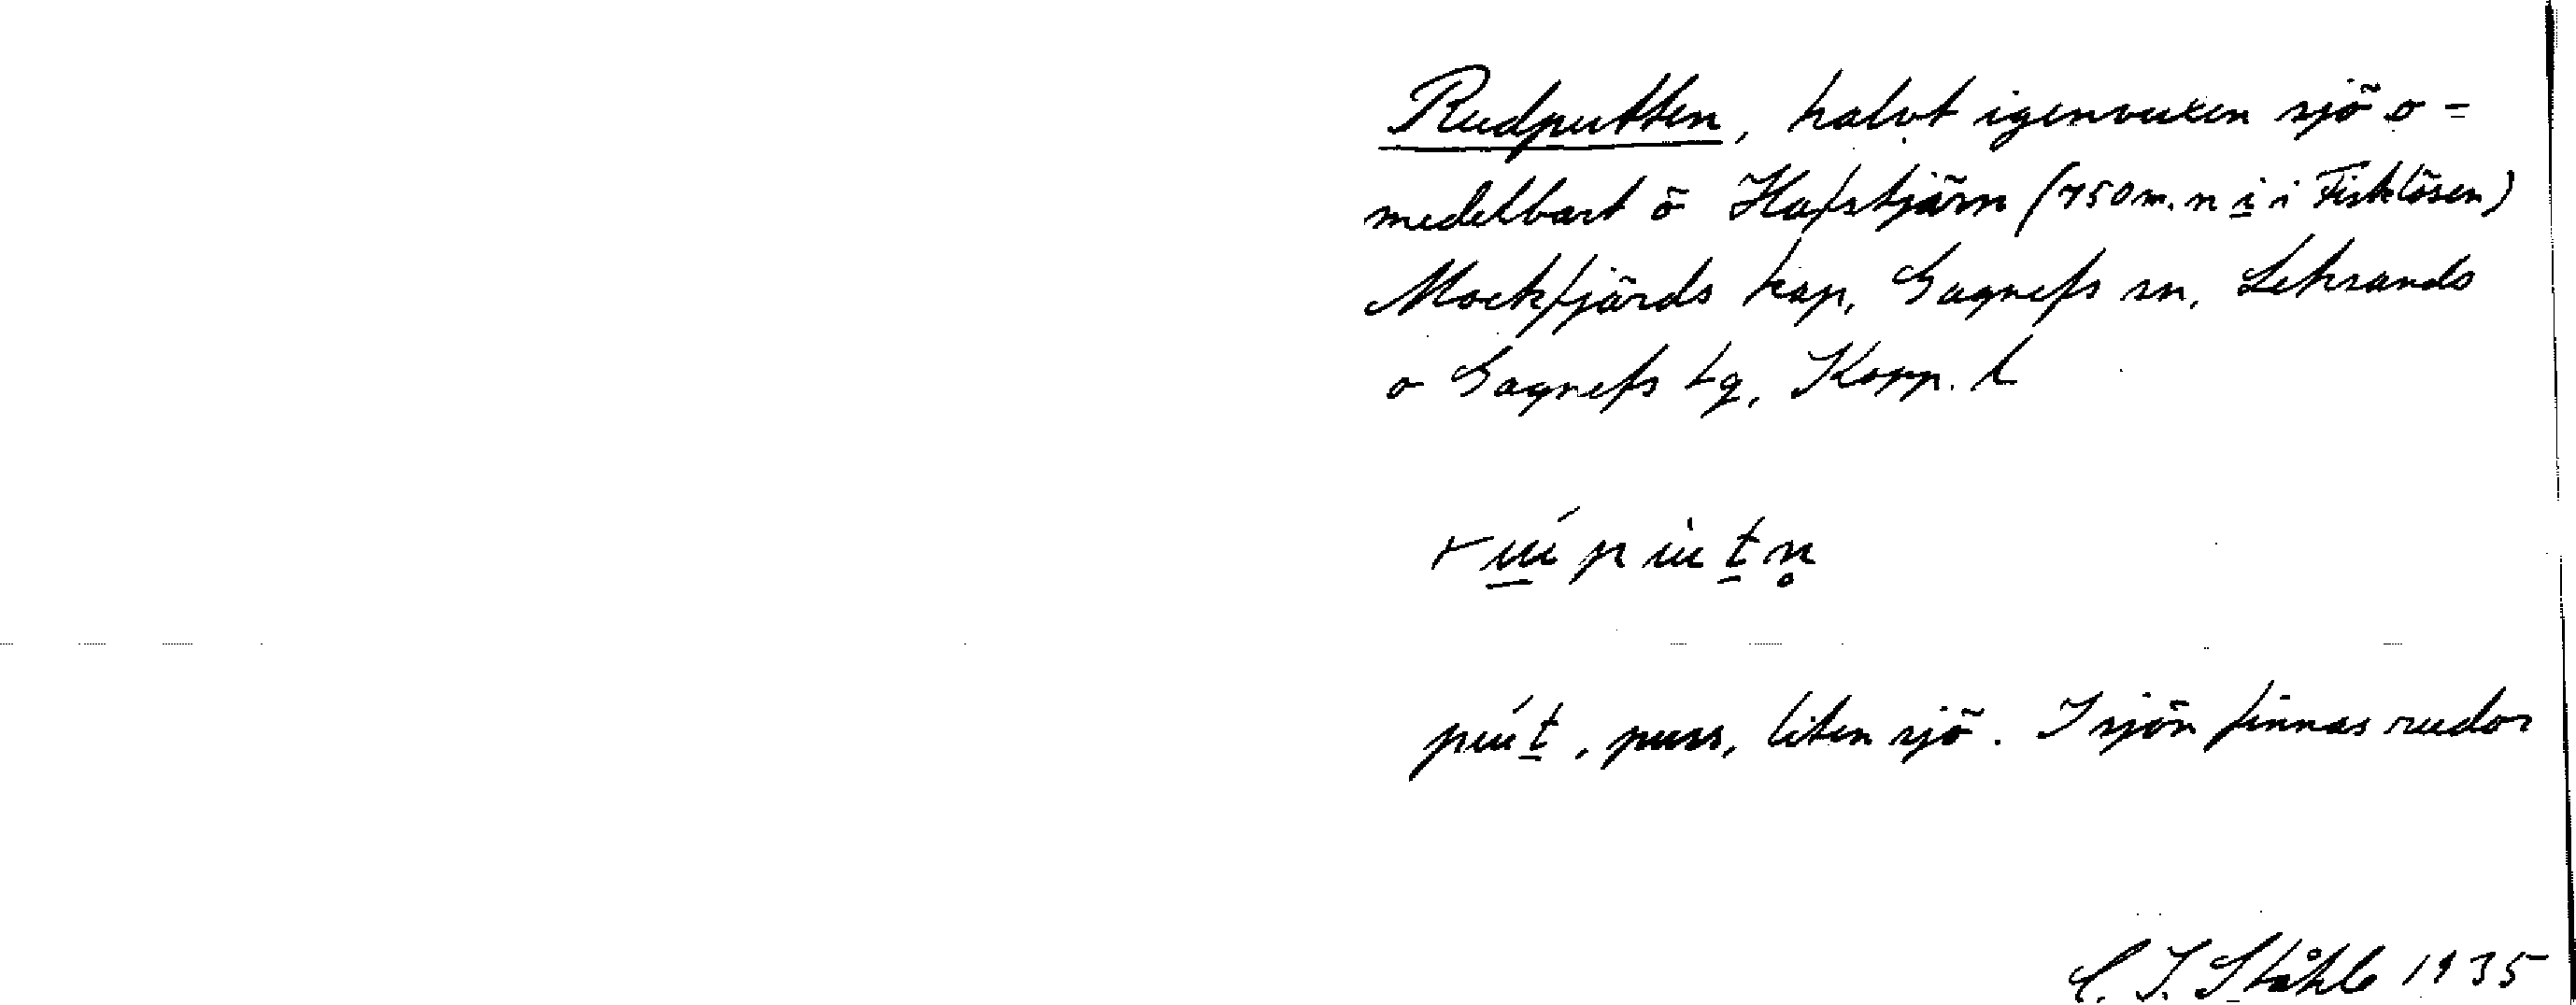 Rudputten, halvt igenvuxen sjö o-
medelbart ö Hafstjärn (750 m. n i i Fisklösen)
Mockfjärds kap, Gagnefs sn, Leksands
o Gagnefs tg, Kopp. l
pút, puss, liten sjö. I sjön finnas rudor
C. I. Ståhle 1935